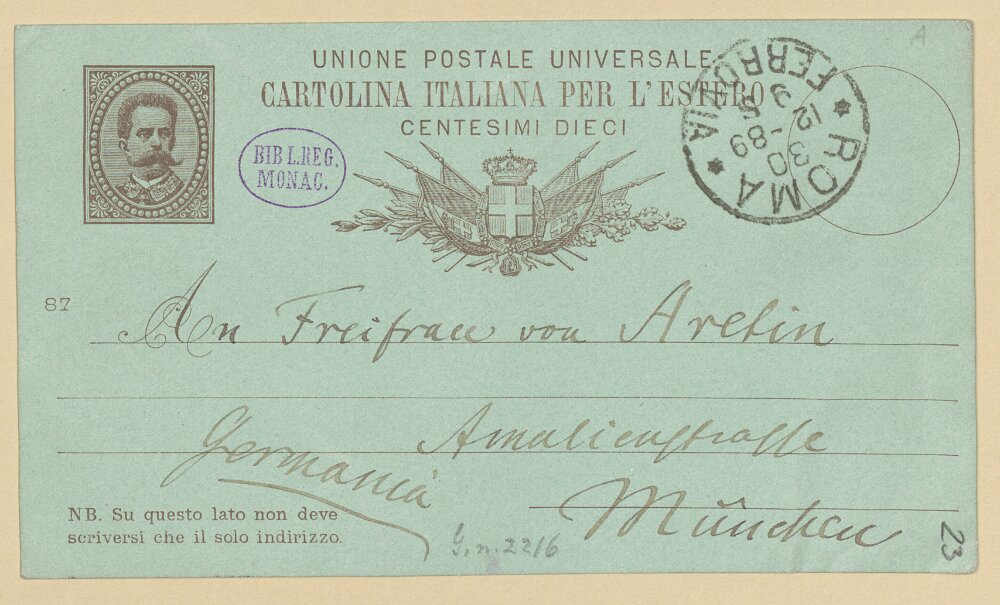 UNIONE POSTALE UNIVERSALE
CARTOLINA ITALIANA PER L'ESTERO
CENTESIMI DIECI
BIBL.REG.
MONAC.
ROMA * FERROVIA *
12 - 89
30
9 5
87
An Freifrau von Aretin
Amalienstrasse
Germania
München
NB. Su questo lato non deve
scriversi che il solo indirizzo.
G.n.2216
23
A